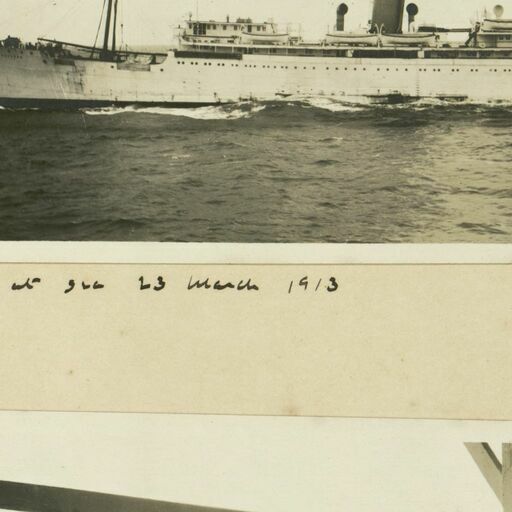 at sea 23 March 1913